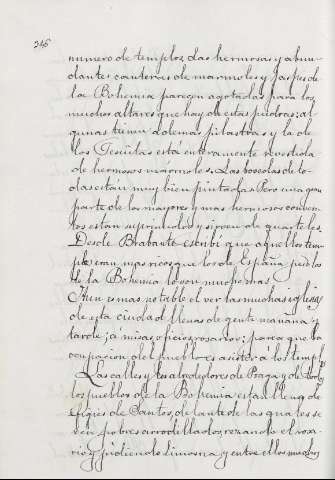 246
numero de templos, las hermosas y abun-
dantes canteras de marmoles y jaspes de
la Bohemia parecen agotadas para los
muchos altares que hay de estas piedras; al
gunas tienen ademas pilastras y la de
los Jesuitas está enteramente vestida
de hermosos marmoles. Las bovedas de to-
das están muy bien pintadas. Pero una gran
parte de los mayores y mas hermosos conven-
tos estan suprimidos y sirven de quarteles.
Desde Brabante escribí que aquellos tem-
plos eran mas ricos que los de España pero los
de la Bohemia lo son mucho mas
Aun es mas notable el ver las muchas iglesias
de esta ciudad llenas de gente mañana y
tarde; á misas, oficios, rosarios; parece que la
ocupacion del pueblo es asistir á los templos
Las calles y los alrededores de Praga y de todos
los pueblos de la Bohemia estan llenos de
efigies de Santos, delante de las quales se
ven pobres arrodillados, rezando el rosa-
rio y pidiendo limosna y entre ellos muchos